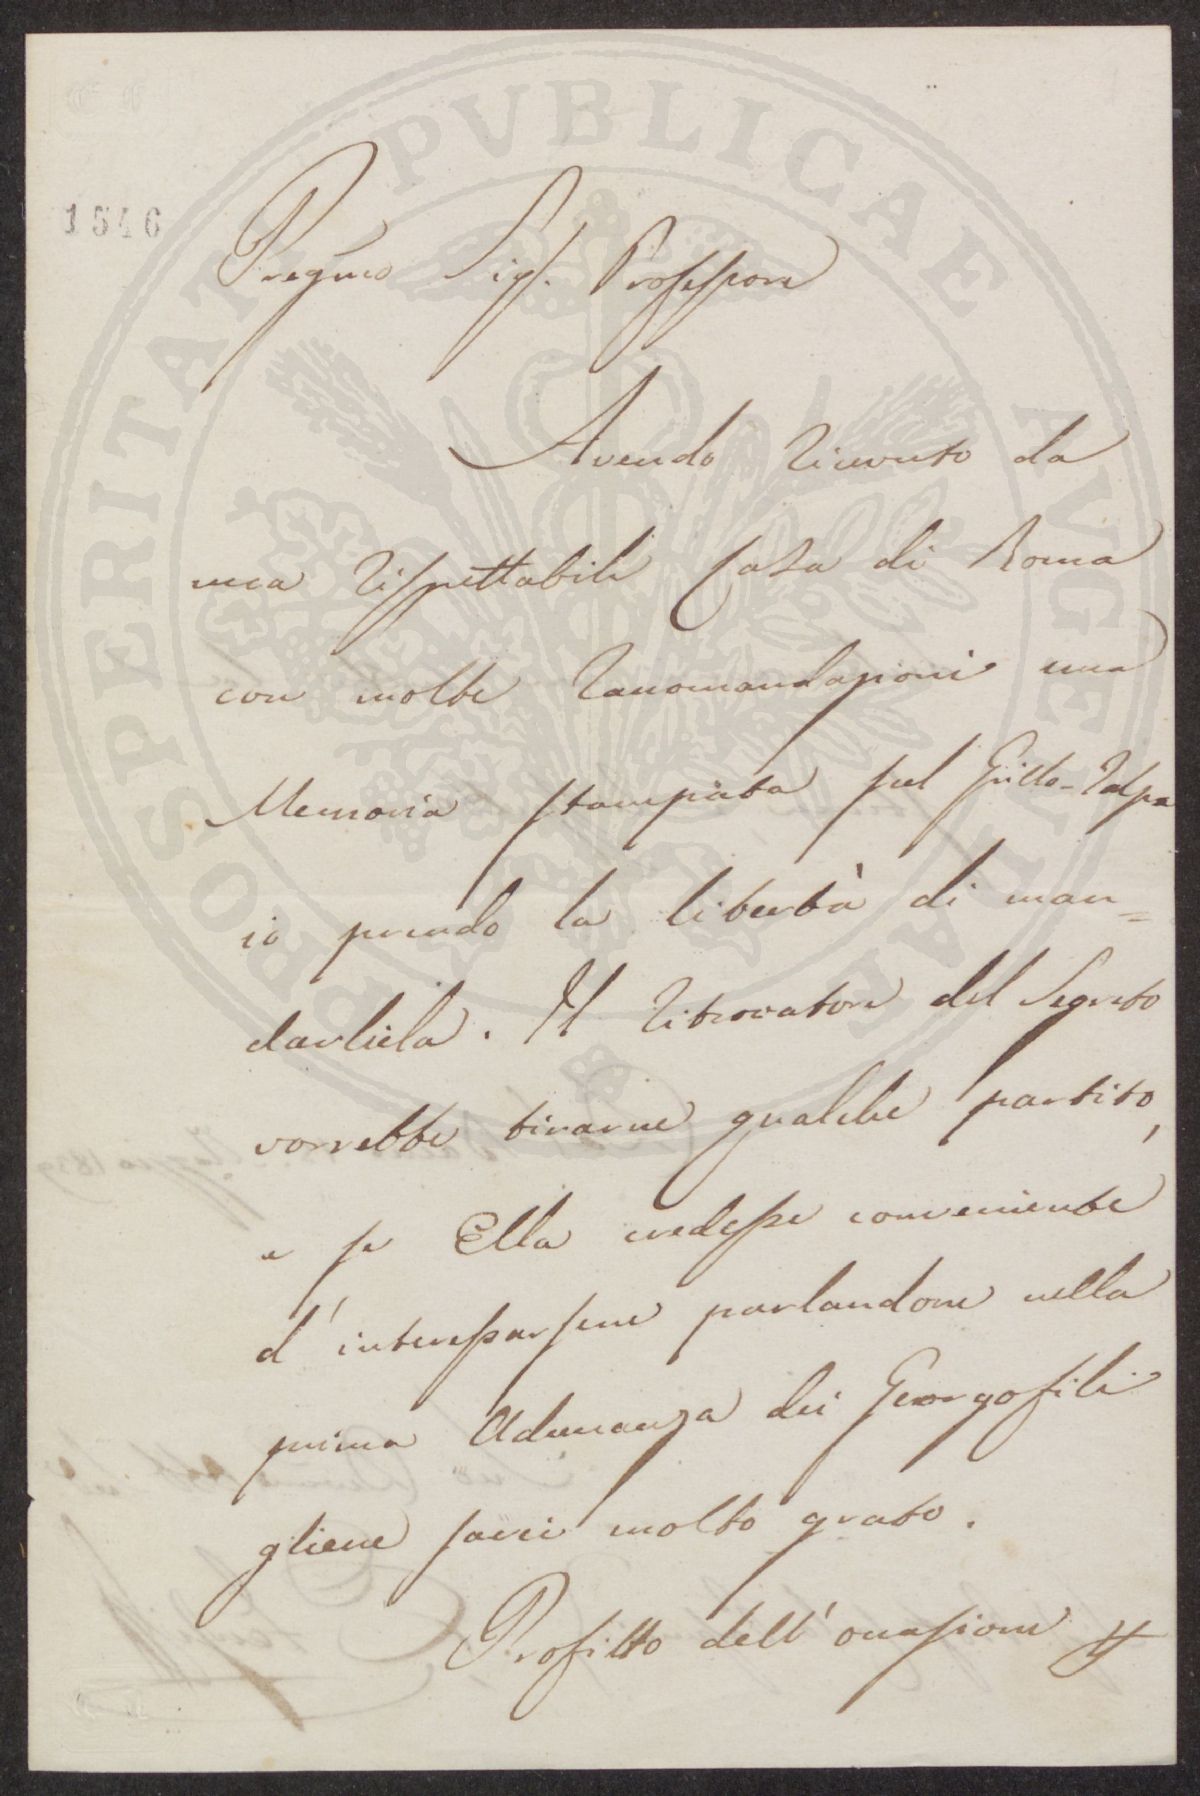 PROSPERITATI PVBLICAE AVGENDAE
1546
Pregmo Sigr. Professore
Avendo ricevuto da
una rispettabile Casa di Roma
con molte raccomandazioni una
Memoria stampata sul Grillo-Talpa
io prendo la libertà di man=
darliela. Il ritrovatore del Segreto
vorrebbe tirarne qualche partito,
e se Ella credesse conveniente
d'interessarsene parlandone nella
prima Adunanza dei Georgofili
gliene sarei molto grato.
Profitto dell'occasione